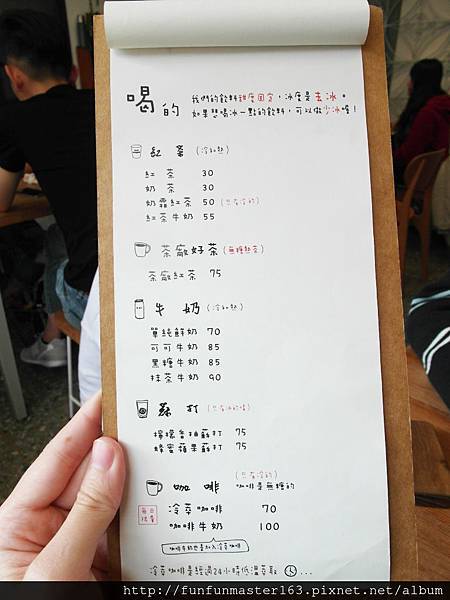 喝的
我們的飲料甜度固定，冰度是去冰。
如果想喝冰一點的飲料，可以做少冰喔！
紅茶（冷和熱）
紅茶 30
奶茶 30
奶霜紅茶 50（只有冷的）
紅茶牛奶 55
茶廠好茶（無糖熱茶）
茶廠紅茶 75
牛奶（冷和熱）
單純鮮奶 70
可可牛奶 85
黑糖牛奶 85
抹茶牛奶 90
蘇打（只有冰的唷）
檸檬蜜柚蘇打 75
蜂蜜蘋果蘇打 75
咖啡（只有冷的）
咖啡是無糖的
每日
冷萃咖啡 70
咖啡牛奶 100
咖啡牛奶也是加入冷萃咖啡
冷萃咖啡是經過24小時低溫萃取...
http://funfunmaster163.pixnet.net/album